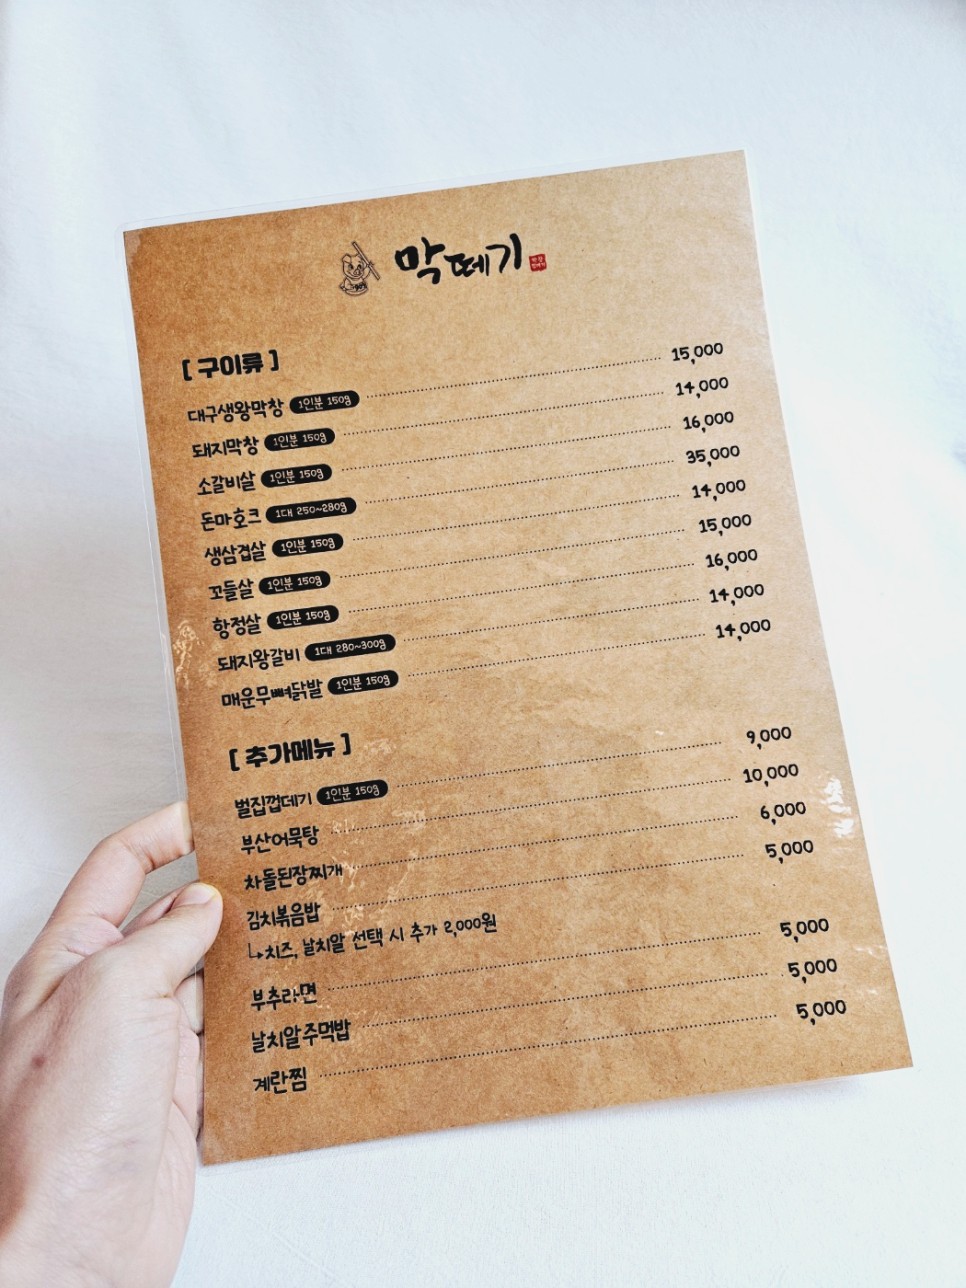 막떼기
[ 구이류 ]
대구생왕막창 1인분 150g 15,000
돼지막창 1인분 150g 14,000
소갈비살 1인분 150g 16,000
돈마호크 1대 250~280g 35,000
생삼겹살 1인분 150g 14,000
꼬들살 1인분 150g 15,000
항정살 1인분 150g 16,000
돼지왕갈비 1대 280~300g 14,000
매운무뼈닭발 1인분 150g 14,000
[ 추가메뉴 ]
벌집껍데기 1인분 150g 9,000
부산어묵탕 10,000
차돌된장찌개 6,000
김치볶음밥 5,000
↳치즈, 날치알 선택 시 추가 2,000원
부추라면 5,000
날치알주먹밥 5,000
계란찜 5,000